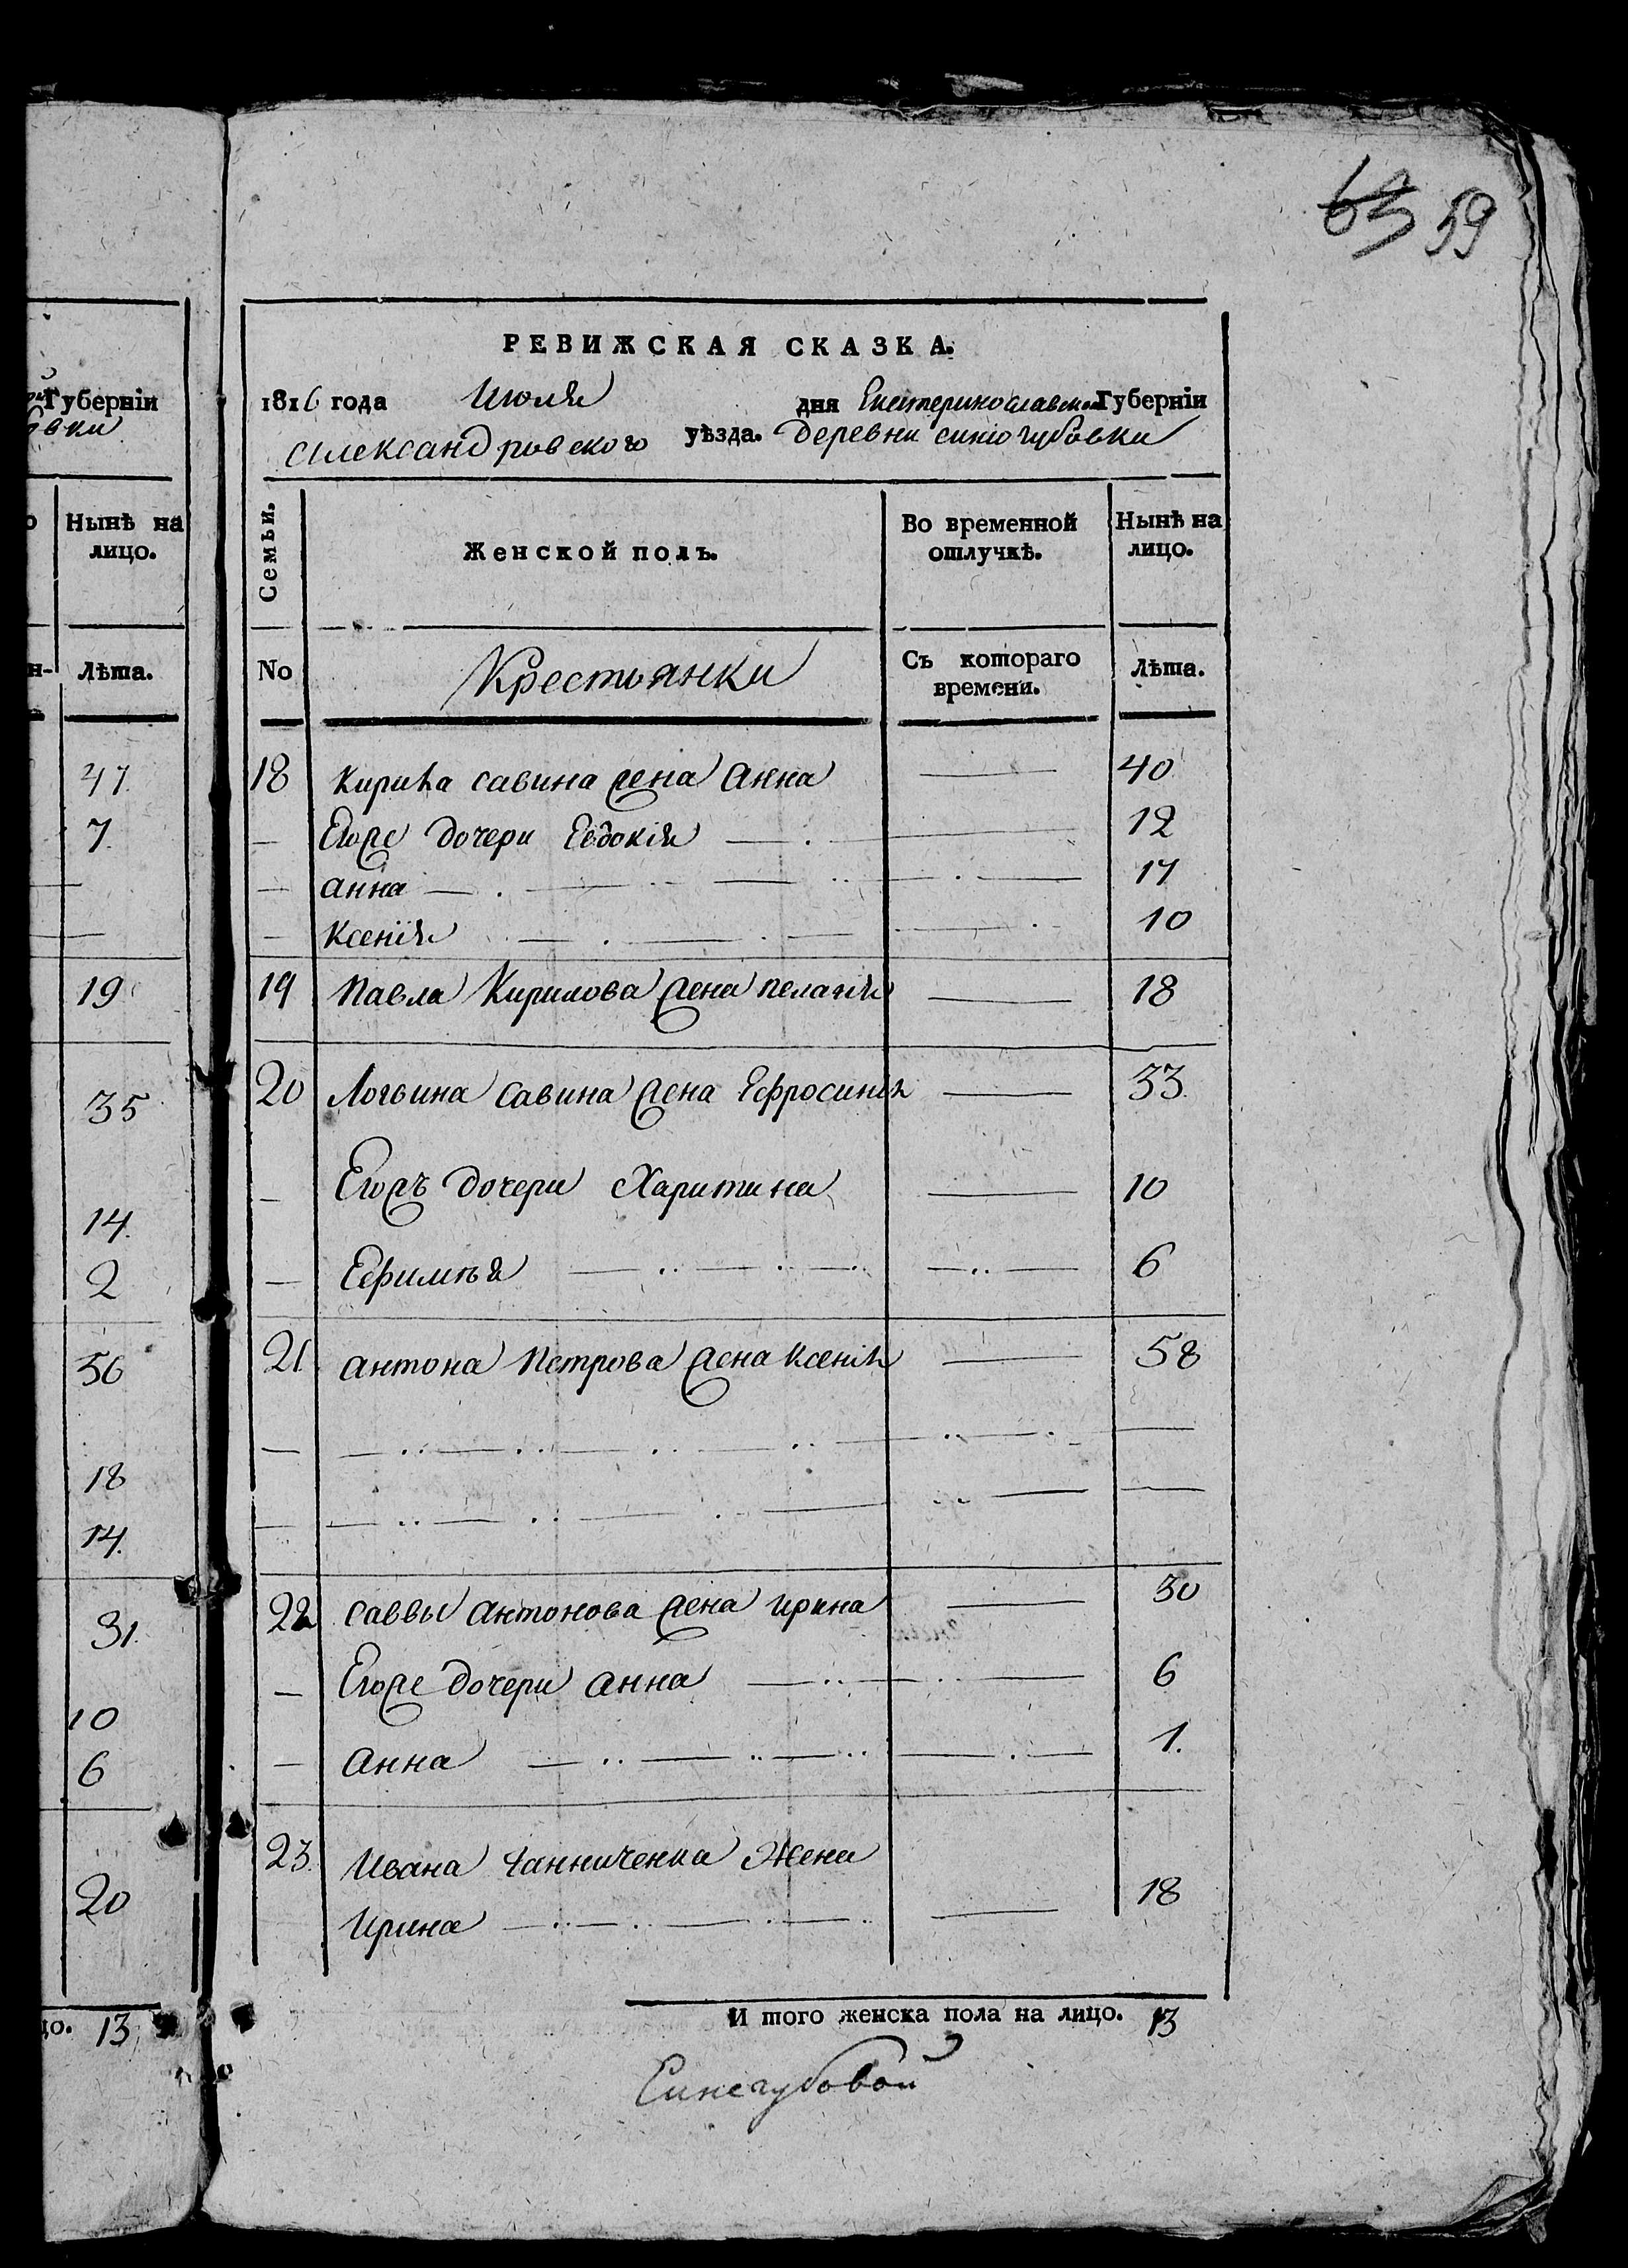 63 59
Губернiи
овки
РЕВИЖСКАЯ СКАЗКА.
1816 года Июля дня Екатеринославской Губернiи
Александровского уѣзда. деревни синюгубовки
Нынѣ на
лицо.
Семьи.
Женской полъ.
Во временной
отлучкѣ.
Нынѣ на
лицо.
Лѣта.
No
Крестьянки
Съ котораго
времени.
Лѣта.
47.
7.
19
35
14.
2
56
18
14.
31.
10
6
20
13
18 Кирила савина жена Анна — 40
— Егоже дочери Евдокiя — 12
— анна — 17
— Ксенiя — 10
19 Павла Кирилова жена пелагия — 18
20 Логвина савина жена Ефросинiя — 33
— Егожъ дочери Харитина — 10
— Ефимья — 6
21. антона Петрова жена Ксенiя — 58
22 саввы Антонова жена ирина — 30
— Егоже дочери анна — 6
— анна — 1.
23. Ивана Жена
Ирина — 18
И того женска пола на лицо. 13
Синегубовой